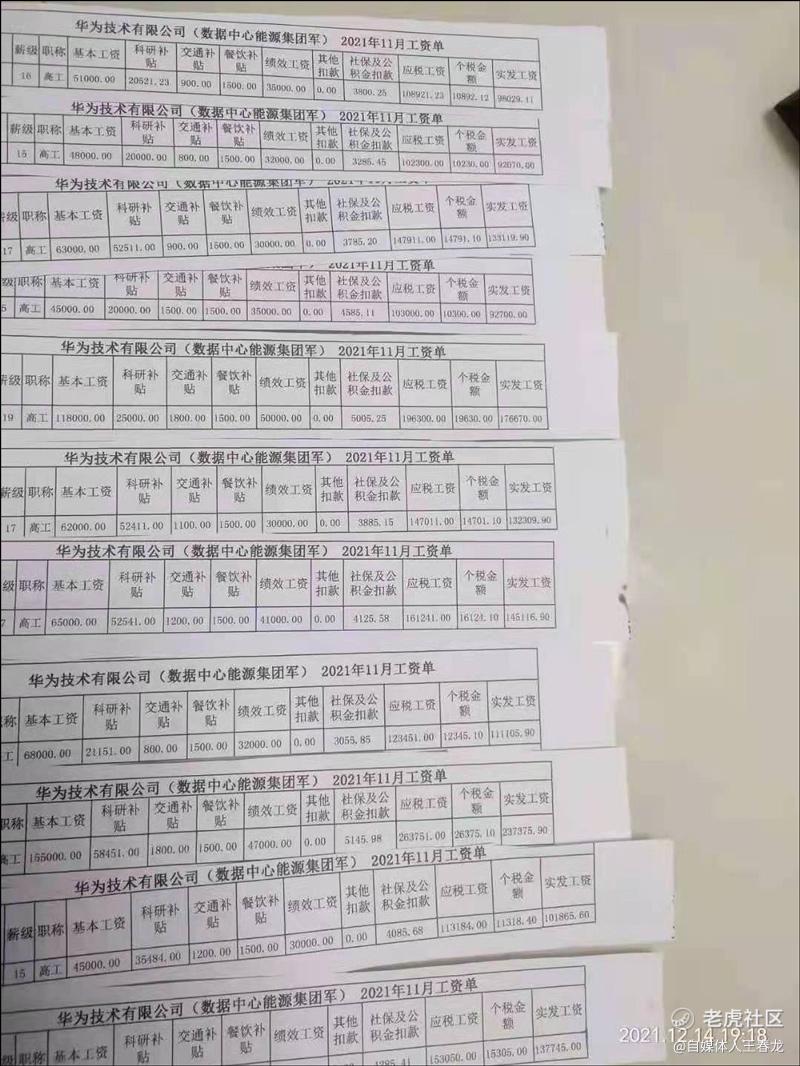 华为技术有限公司（数据中心能源集团军） 2021年11月工资单
薪级 职称 基本工资 科研补贴 交通补贴 餐饮补贴 绩效工资 其他扣款 社保及公积金扣款 应税工资 个税金额 实发工资
16 高工 51000.00 20521.23 900.00 1500.00 35000.00 0.00 3800.25 108921.23 10892.12 98029.11
华为技术有限公司（数据中心能源集团军） 2021年11月工资单
薪级 职称 基本工资 科研补贴 交通补贴 餐饮补贴 绩效工资 其他扣款 社保及公积金扣款 应税工资 个税金额 实发工资
15 高工 48000.00 20000.00 800.00 1500.00 32000.00 0.00 3285.45 102300.00 10230.00 92070.00
华为技术有限公司（数据中心能源集团军） 2021年11月工资单
薪级 职称 基本工资 科研补贴 交通补贴 餐饮补贴 绩效工资 其他扣款 社保及公积金扣款 应税工资 个税金额 实发工资
17 高工 63000.00 52511.00 900.00 1500.00 30000.00 0.00 3785.20 147911.00 14791.10 133119.90
2021年11月工资单
级 职称 基本工资 科研补贴 交通补贴 餐饮补贴 绩效工资 其他扣款 社保及公积金扣款 应税工资 个税金额 实发工资
5 高工 45000.00 20000.00 1500.00 1500.00 35000.00 0.00 4585.11 103000.00 10300.00 92700.00
华为技术有限公司（数据中心能源集团军） 2021年11月工资单
薪级 职称 基本工资 科研补贴 交通补贴 餐饮补贴 绩效工资 其他扣款 社保及公积金扣款 应税工资 个税金额 实发工资
19 高工 118000.00 25000.00 1800.00 1500.00 50000.00 0.00 5005.25 196300.00 19630.00 176670.00
华为技术有限公司（数据中心能源集团军） 2021年11月工资单
薪级 职称 基本工资 科研补贴 交通补贴 餐饮补贴 绩效工资 其他扣款 社保及公积金扣款 应税工资 个税金额 实发工资
17 高工 62000.00 52411.00 1100.00 1500.00 30000.00 0.00 3885.15 147011.00 14701.10 132309.90
华为技术有限公司（数据中心能源集团军） 2021年11月工资单
级 职称 基本工资 科研补贴 交通补贴 餐饮补贴 绩效工资 其他扣款 社保及公积金扣款 应税工资 个税金额 实发工资
7 高工 65000.00 52541.00 1200.00 1500.00 41000.00 0.00 4125.58 161241.00 16124.10 145116.90
华为技术有限公司（数据中心能源集团军） 2021年11月工资单
职称 基本工资 科研补贴 交通补贴 餐饮补贴 绩效工资 其他扣款 社保及公积金扣款 应税工资 个税金额 实发工资
工 68000.00 21151.00 800.00 1500.00 32000.00 0.00 3055.85 123451.00 12345.10 111105.90
华为技术有限公司（数据中心能源集团军） 2021年11月工资单
职称 基本工资 科研补贴 交通补贴 餐饮补贴 绩效工资 其他扣款 社保及公积金扣款 应税工资 个税金额 实发工资
高工 155000.00 58451.00 1800.00 1500.00 47000.00 0.00 5145.98 263751.00 26375.10 237375.90
华为技术有限公司（数据中心能源集团军） 2021年11月工资单
薪级 职称 基本工资 科研补贴 交通补贴 餐饮补贴 绩效工资 其他扣款 社保及公积金扣款 应税工资 个税金额 实发工资
15 高工 45000.00 35484.00 1200.00 1500.00 30000.00 0.00 4085.68 113184.00 11318.40 101865.60
华为技术有限公司（数据中心能源集团军） 2021年11月工资单
薪级 职称 基本工资 科研补贴 交通补贴 餐饮补贴 绩效工资 其他扣款 社保及公积金扣款 应税工资 个税金额 实发工资
153050.00 15305.00 137745.00
老虎社区
2021.12.14 19:18
@自媒体人王春龙